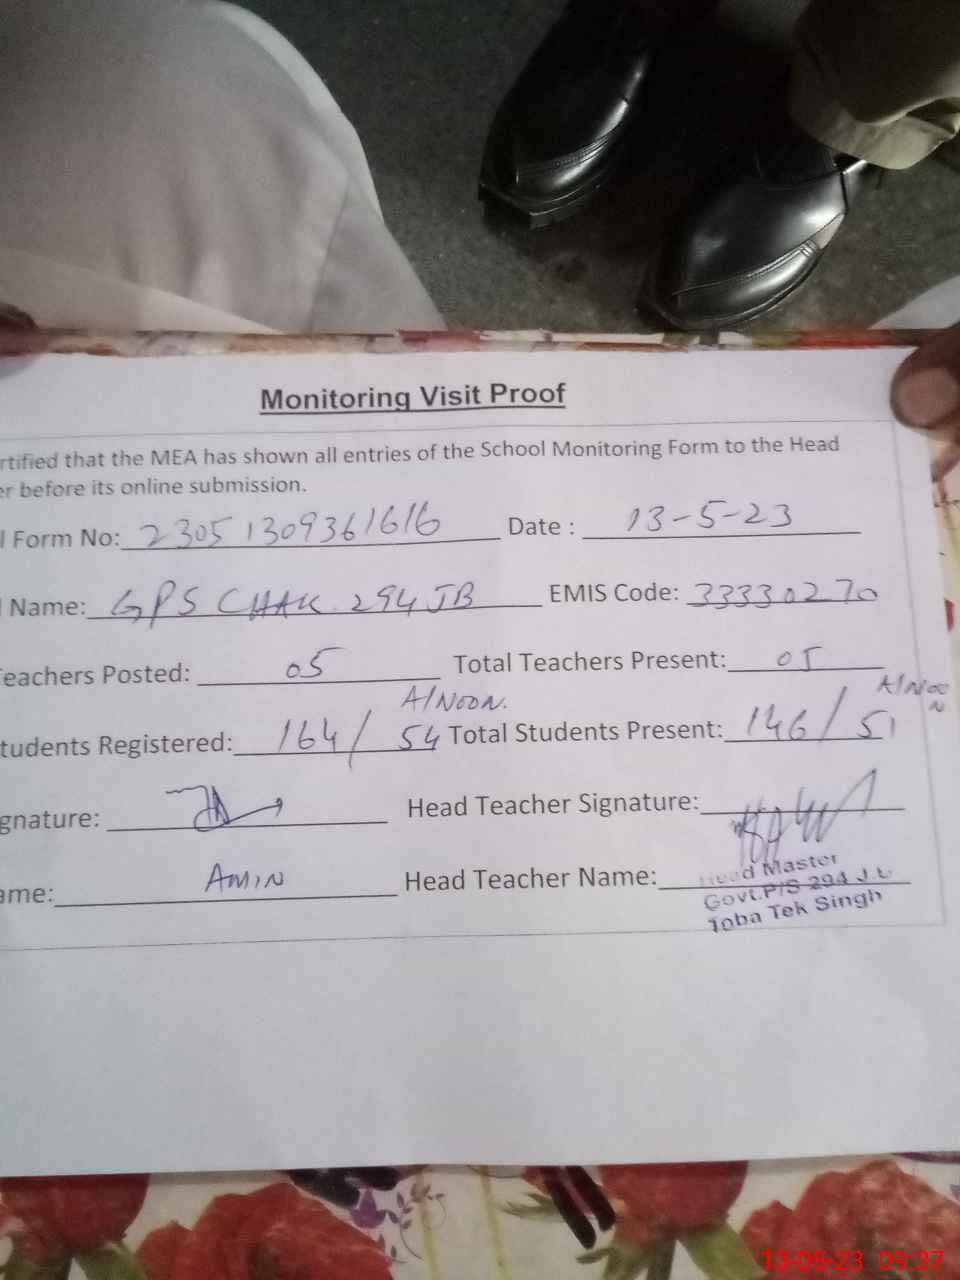 Monitoring Visit Proof
rtified that the MEA has shown all entries of the School Monitoring Form to the Head
er before its online submission.
l Form No: 23051309361616 Date : 13-5-23
l Name: GPS CHAK 294 JB EMIS Code: 33330270
Teachers Posted: 05 Total Teachers Present: 05
A/NOON. A/NOON
tudents Registered: 164/ 54 Total Students Present: 146/51
gnature: Head Teacher Signature:
ame: AMIN Head Teacher Name:
Head Master
Govt.P/S 294 J.B
Toba Tek Singh
13-05-23 09:37